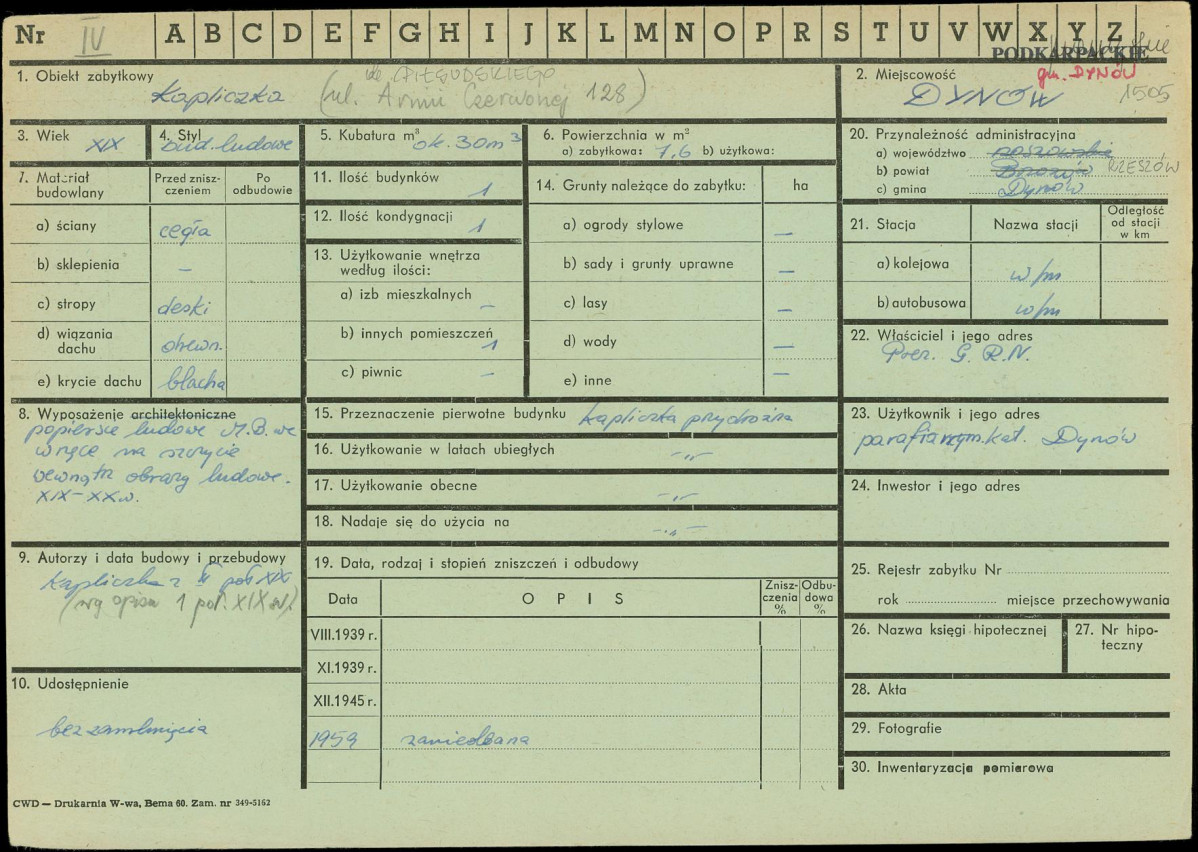 Nr IV A B C D E F G H I J K L M N O P R S T U V W X Y Z
PODKARPACKIE
1. Obiekt zabytkowy
ul. PIŁSUDSKIEGO
Kapliczka (ul. Armii Czerwonej 128)
2. Miejscowość
gm. DYNÓW
DYNÓW 1505
3. Wiek XIX
4. Styl bud. ludowe
5. Kubatura m³ ok. 30m³
6. Powierzchnia w m²
a) zabytkowa: 7,6 b) użytkowa:
7. Materiał budowlany
Przed zniszczeniem
Po odbudowie
a) ściany cegła
b) sklepienia –
c) stropy deski
d) wiązania dachu drewn.
e) krycie dachu blacha
8. Wyposażenie architektoniczne
popiersie ludowe M.B. we
wnęce na szczycie
wewnątrz obrazy ludowe.
XIX-XXw.
9. Autorzy i data budowy i przebudowy
Kapliczka z II poł XIX
(wg opisu 1 poł. XIX w).
10. Udostępnienie
bez zamknięcia
11. Ilość budynków 1
12. Ilość kondygnacji 1
13. Użytkowanie wnętrza
według ilości:
a) izb mieszkalnych –
b) innych pomieszczeń 1
c) piwnic –
14. Grunty należące do zabytku: ha
a) ogrody stylowe –
b) sady i grunty uprawne –
c) lasy –
d) wody –
e) inne –
15. Przeznaczenie pierwotne budynku kapliczka przydrożna
16. Użytkowanie w latach ubiegłych -„-
17. Użytkowanie obecne -„-
18. Nadaje się do użycia na -„-
19. Data, rodzaj i stopień zniszczeń i odbudowy
Data OPIS Zniszczenia % Odbudowa %
VIII.1939 r.
XI.1939 r.
XII.1945 r.
1959 zaniedbana
20. Przynależność administracyjna
a) województwo rzeszowskie
b) powiat Brzozów RZESZÓW
c) gmina Dynów
21. Stacja Nazwa stacji Odległość od stacji w km
a) kolejowa w/m
b) autobusowa w/m
22. Właściciel i jego adres
Prez. G. R.N.
23. Użytkownik i jego adres
parafia rzym. kat. Dynów
24. Inwestor i jego adres
25. Rejestr zabytku Nr
rok miejsce przechowywania
26. Nazwa księgi hipotecznej
27. Nr hipoteczny
28. Akta
29. Fotografie
30. Inwentaryzacja pomiarowa
CWD — Drukarnia W-wa, Bema 60. Zam. nr 349-5162